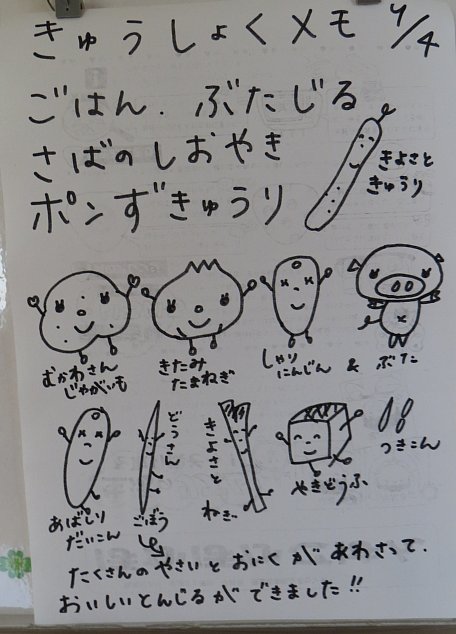 きゅうしょくメモ 4/4
ごはん．ぶたじる
さばのしおやき
ポンずきゅうり
きよさと
きゅうり
むかわさん
じゃがいも
きたみ
たまねぎ
しゃり
にんじん
&
ぶた
あばしり
だいこん
どうさん
ごぼう
きよさと
ねぎ
やきどうふ
つきこん
たくさんのやさいとおにくがあわさって、
おいしいとんじるができました!!